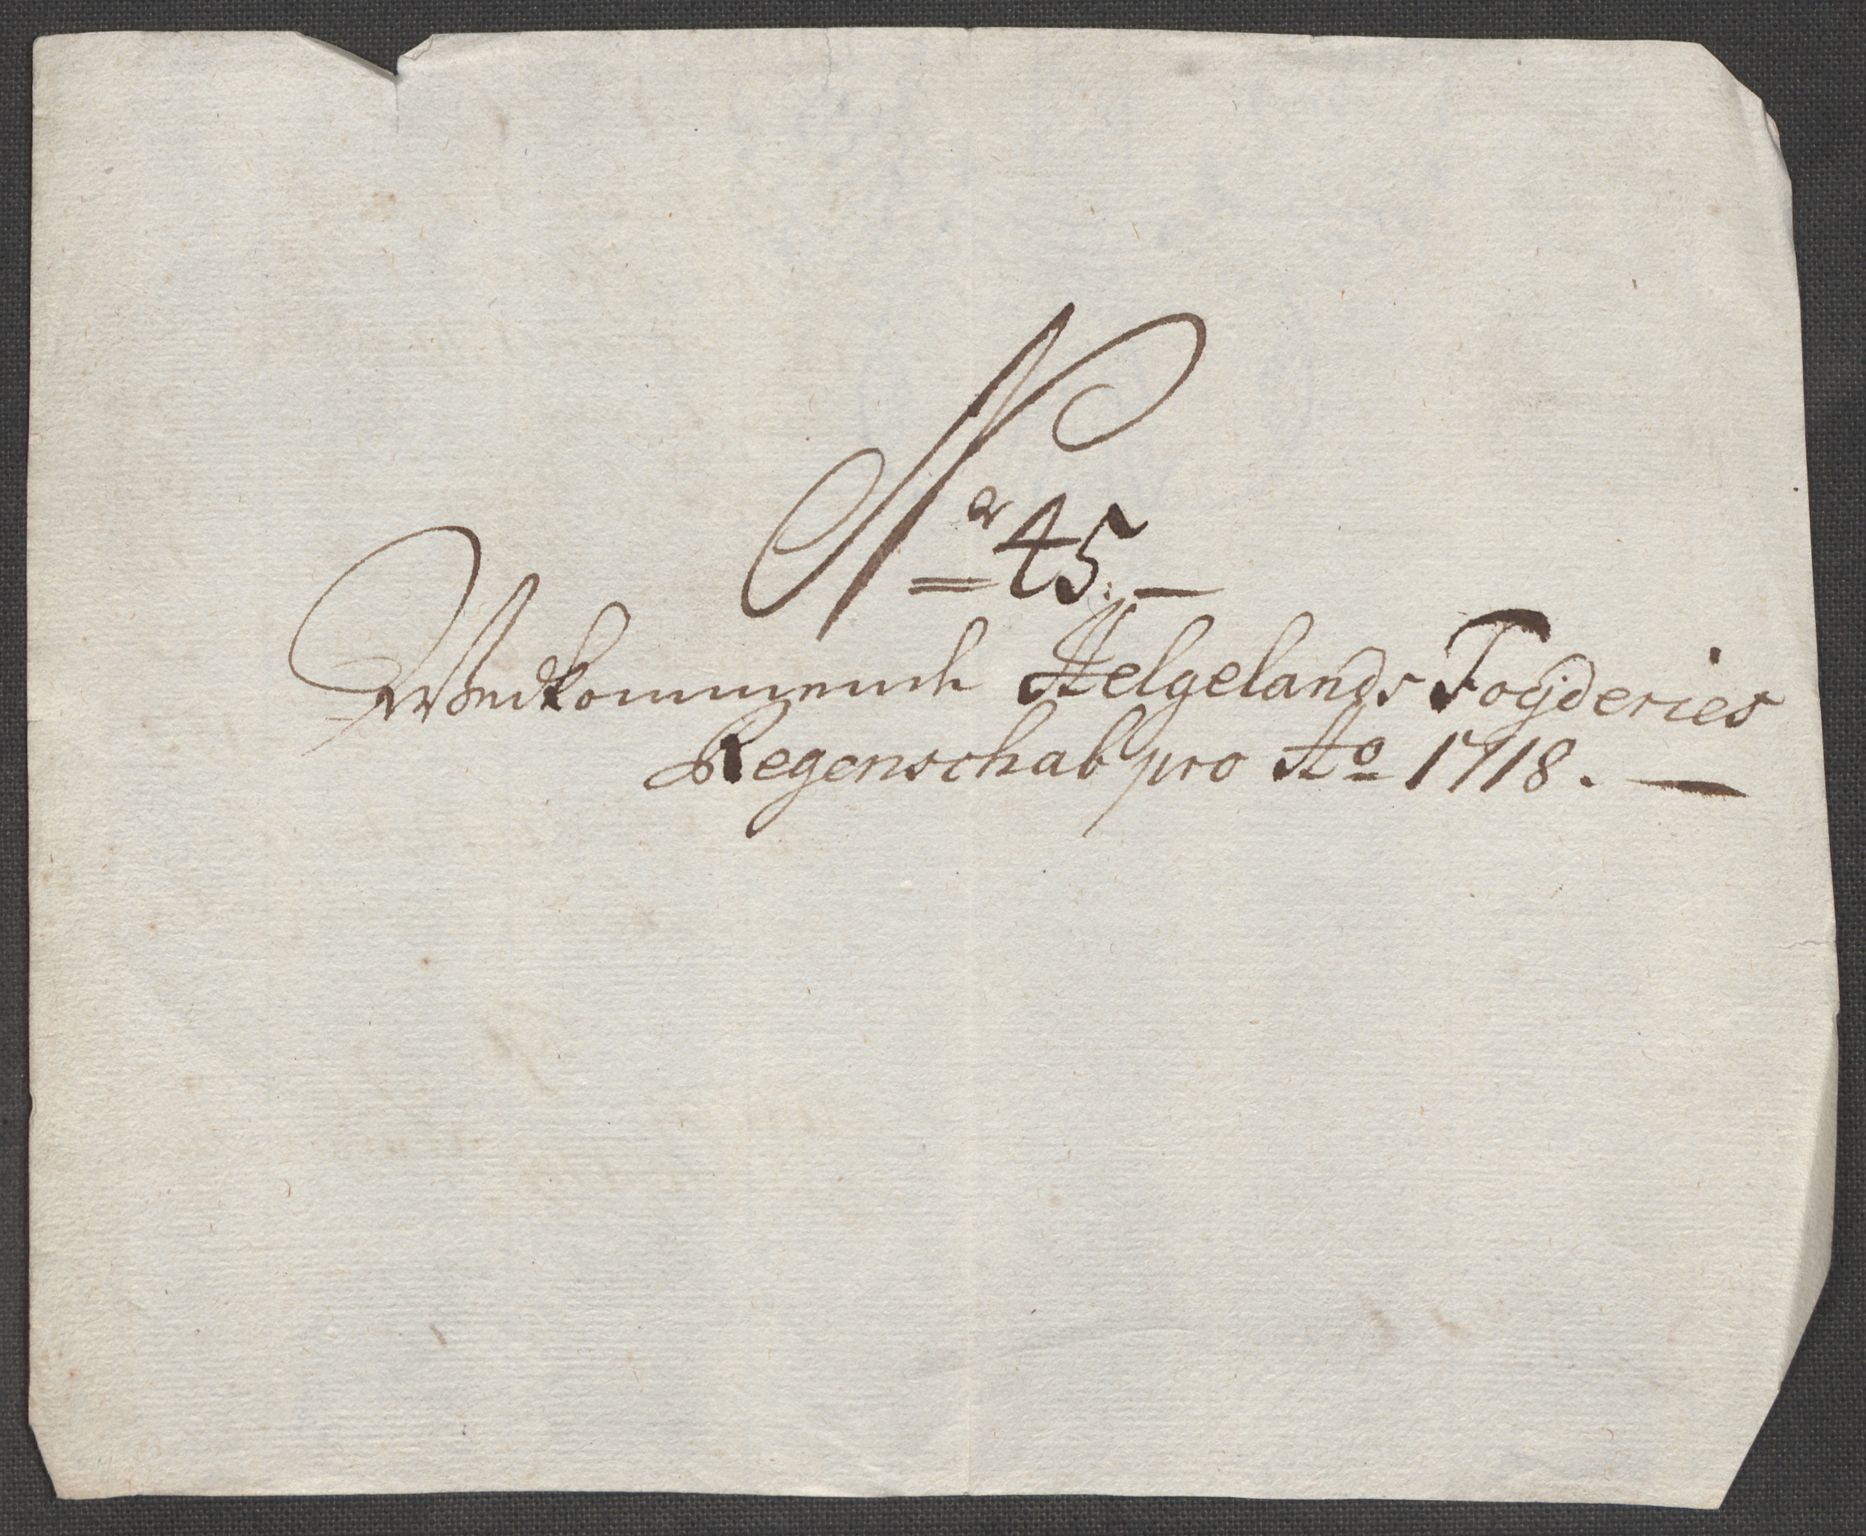 Nr 45.
Wedkommende Helgelands Fogderies
Regenschab pro Ao 1718.